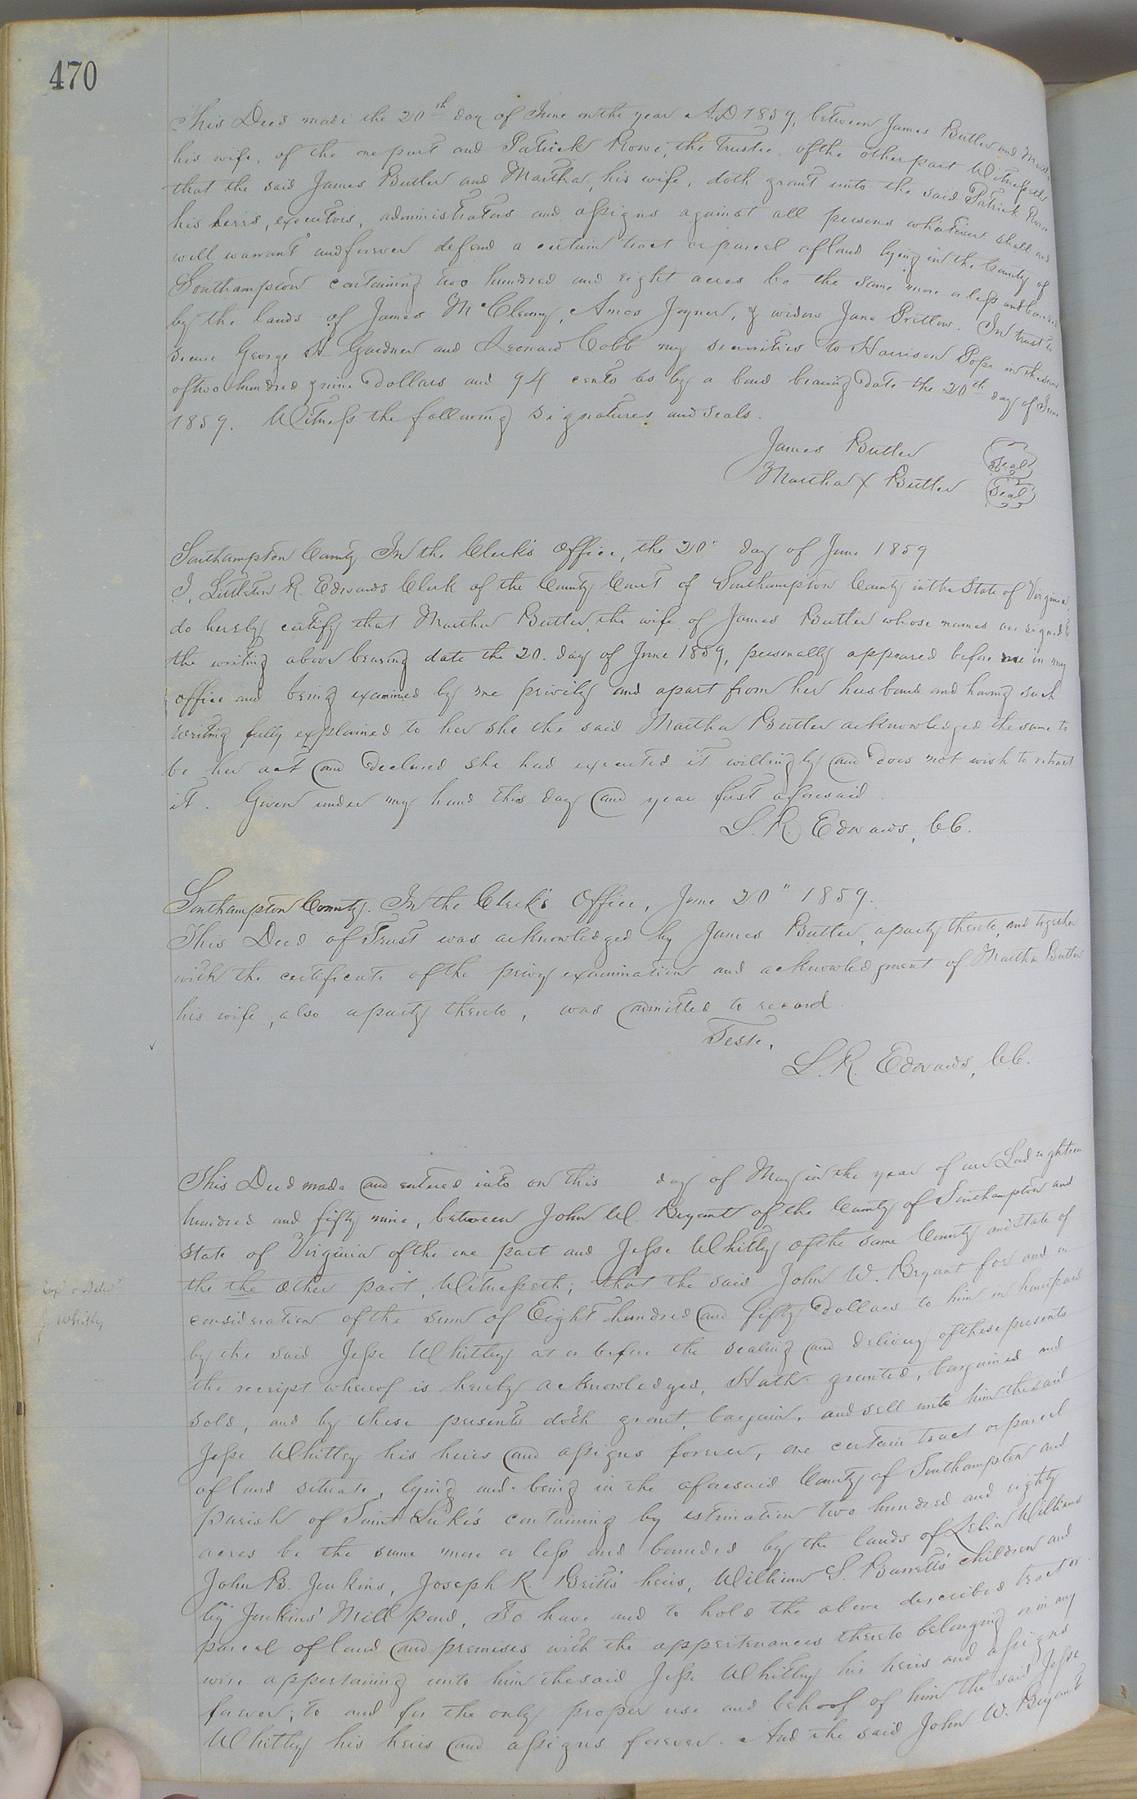 470
This Deed made the 20th day of June in the year A.D 1859, between James Butler and Martha
his wife, of the one part and Patrick Rowe, the Trustee of the other part Witnesseth
that the said James Butler and Martha, his wife, doth grant unto the said Patrick Rowe
his heirs, executors, administrators and assigns against all persons whatsoever shall and
will warrant and forever defend a certain tract or parcel of land lying in the County of
Southampton containing two hundred and eight acres be the same more or less and bounded
by the lands of James McClenny, Amos Joyner, & widow Jane Pretlow. In trust to
secure George H Gardner and Leonard Cobb my securities to Harrison Pope in the sum
of two hundred nine Dollars and 94 cents as by a bond bearing date the 20th day of June
1859. Witness the following signatures and seals.
James Butler Seal
Martha X Butler Seal
Southampton County In the Clerk's Office, the 20" day of June 1859
I, Littleton R. Edwards Clerk of the County Court of Southampton County in the State of Virginia,
do hereby certify that Martha Butler, the wife of James Butler whose names are signed to
the writing above bearing date the 20. day of June 1859, personally appeared before me in my
office and being examined by me privily and apart from her husband and having such
writing fully explained to her she the said Martha Butler acknowledged the same to
be her act and declared she had executed it willingly and does not wish to retract
it. Given under my hand this day and year first aforesaid.
L. R Edwards, CC.
Southampton County. In the Clerk's Office, June 20" 1859.
This Deed of Trust was acknowledged by James Butler, a party thereto, and together
with the certificate of the privy examination and acknowledgment of Martha Butler
his wife, also a party thereto, was admitted to record.
Teste,
L. R. Edwards, CC.
This Deed made and entered into on this day of May in the year of our Lord eighteen
hundred and fifty nine, between John W. Bryant of the County of Southampton and
State of Virginia of the one part and Jesse Whitley of the same County and State of
the the other part, Witnesseth; that the said John W. Bryant for and in
consideration of the sum of Eight hundred and fifty Dollars to him in hand paid
by the said Jesse Whitley at or before the sealing and delivery of these presents
the receipt whereof is hereby acknowledged, Hath granted, bargained and
sold, and by these presents doth grant, bargain, and sell unto him the said
Jesse Whitley his heirs and assigns forever, one certain tract or parcel
of land situate, lying and being in the aforesaid County of Southampton and
parish of Saint Luke's containing by estimation two hundred and eighty
acres be the same more or less and bounded by the lands of Zelia Williams
John B. Jenkins, Joseph R. Britt's heirs, William S. Barrett's children and
by Jenkins' Mill pond, To have and to hold the above described tract or
parcel of land and premises with the appurtenances thereto belonging or in any
wise appertaining unto him the said Jesse Whitley his heirs and assigns
forever, to and for the only proper use and behoof of him the said Jesse
Whitley his heirs and assigns forever. And the said John W. Bryant
J. Whitley